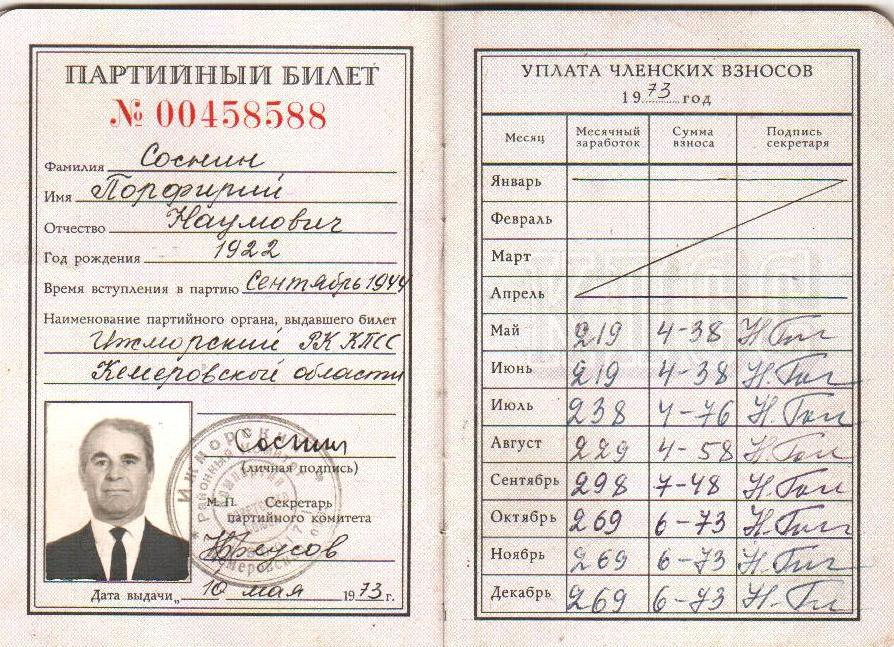 ПАРТИЙНЫЙ БИЛЕТ
№ 00458588
Фамилия Соснин
Имя Порфирий
Отчество Наумович
Год рождения 1922
Время вступления в партию Сентябрь 1944
Наименование партийного органа, выдавшего билет
Ижморский РК КПСС
Кемеровской области
Соснин
(личная подпись)
М. П. Секретарь
партийного комитета
Дата выдачи „ 10 мая 1973 г.
УПЛАТА ЧЛЕНСКИХ ВЗНОСОВ
1973 год
Месяц Месячный заработок Сумма взноса Подпись секретаря
Январь
Февраль
Март
Апрель
Май 219 4-38
Июнь 219 4-38
Июль 238 4-76
Август 229 4-58
Сентябрь 298 7-48
Октябрь 269 6-73
Ноябрь 269 6-73
Декабрь 269 6-73